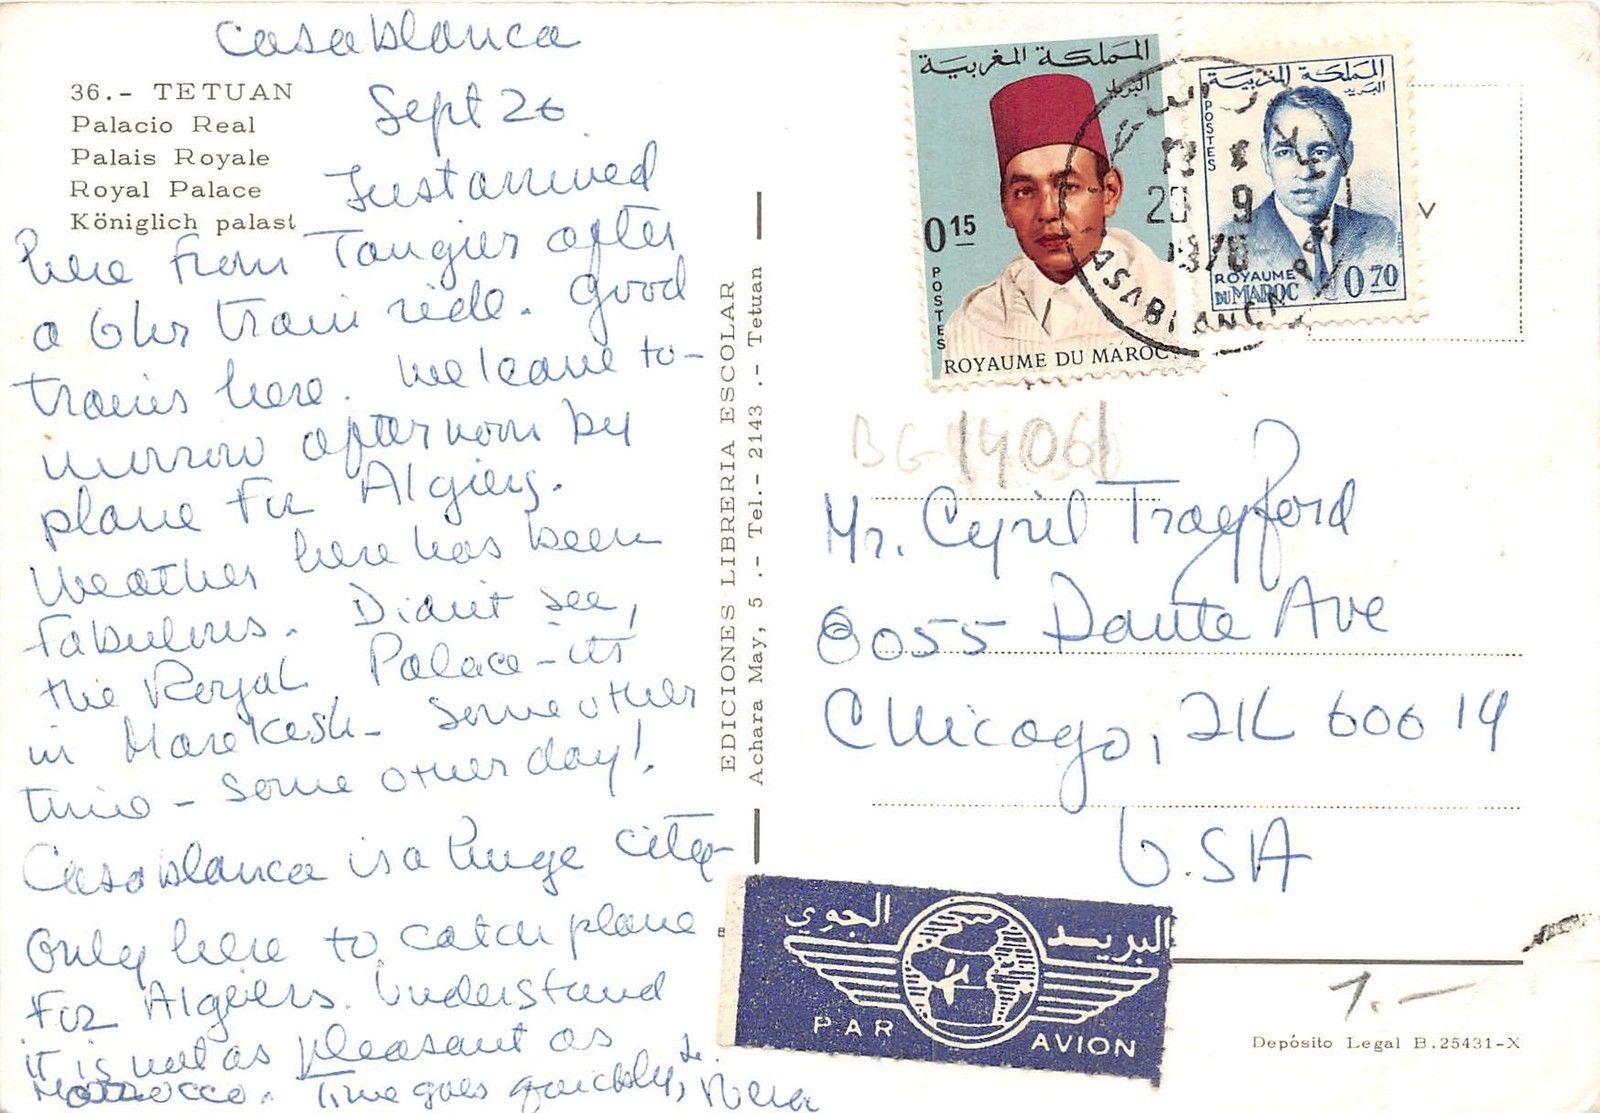 Casablanca
Sept 26
36.- TETUAN
Palacio Real
Palais Royale
Royal Palace
Königlich palast
Just arrived
here from Tangier after
a 6 hr train ride. Good
trains here. We leave to-
morrow afternoon by
plane for Algiers.
Weather here has been
fabulous. Didn't see,
the Royal Palace - its
in Marekesh - some other
time - some other day!
Casablanca is a huge city-
only here to catch plane
for Algiers. Understand
it is not as pleasant as
Morrocco. Time goes quickly,
EDICIONES LIBRERIA ESCOLAR
Achara May, 5 .- Tel.- 2143 .- Tetuan
المملكة المغربية
البريد
0.15
POSTES
ROYAUME DU MAROC
المملكة المغربية
البريد
POSTES
ROYAUME
DU MAROC
0.70
9
CASABLANCA
BG 14061
Mr. Cyril Trayford
8055 Dante Ave
Chicago, IL 60619
U.S.A
البريد الجوي
PAR AVION
1.-
Depósito Legal B.25431-X